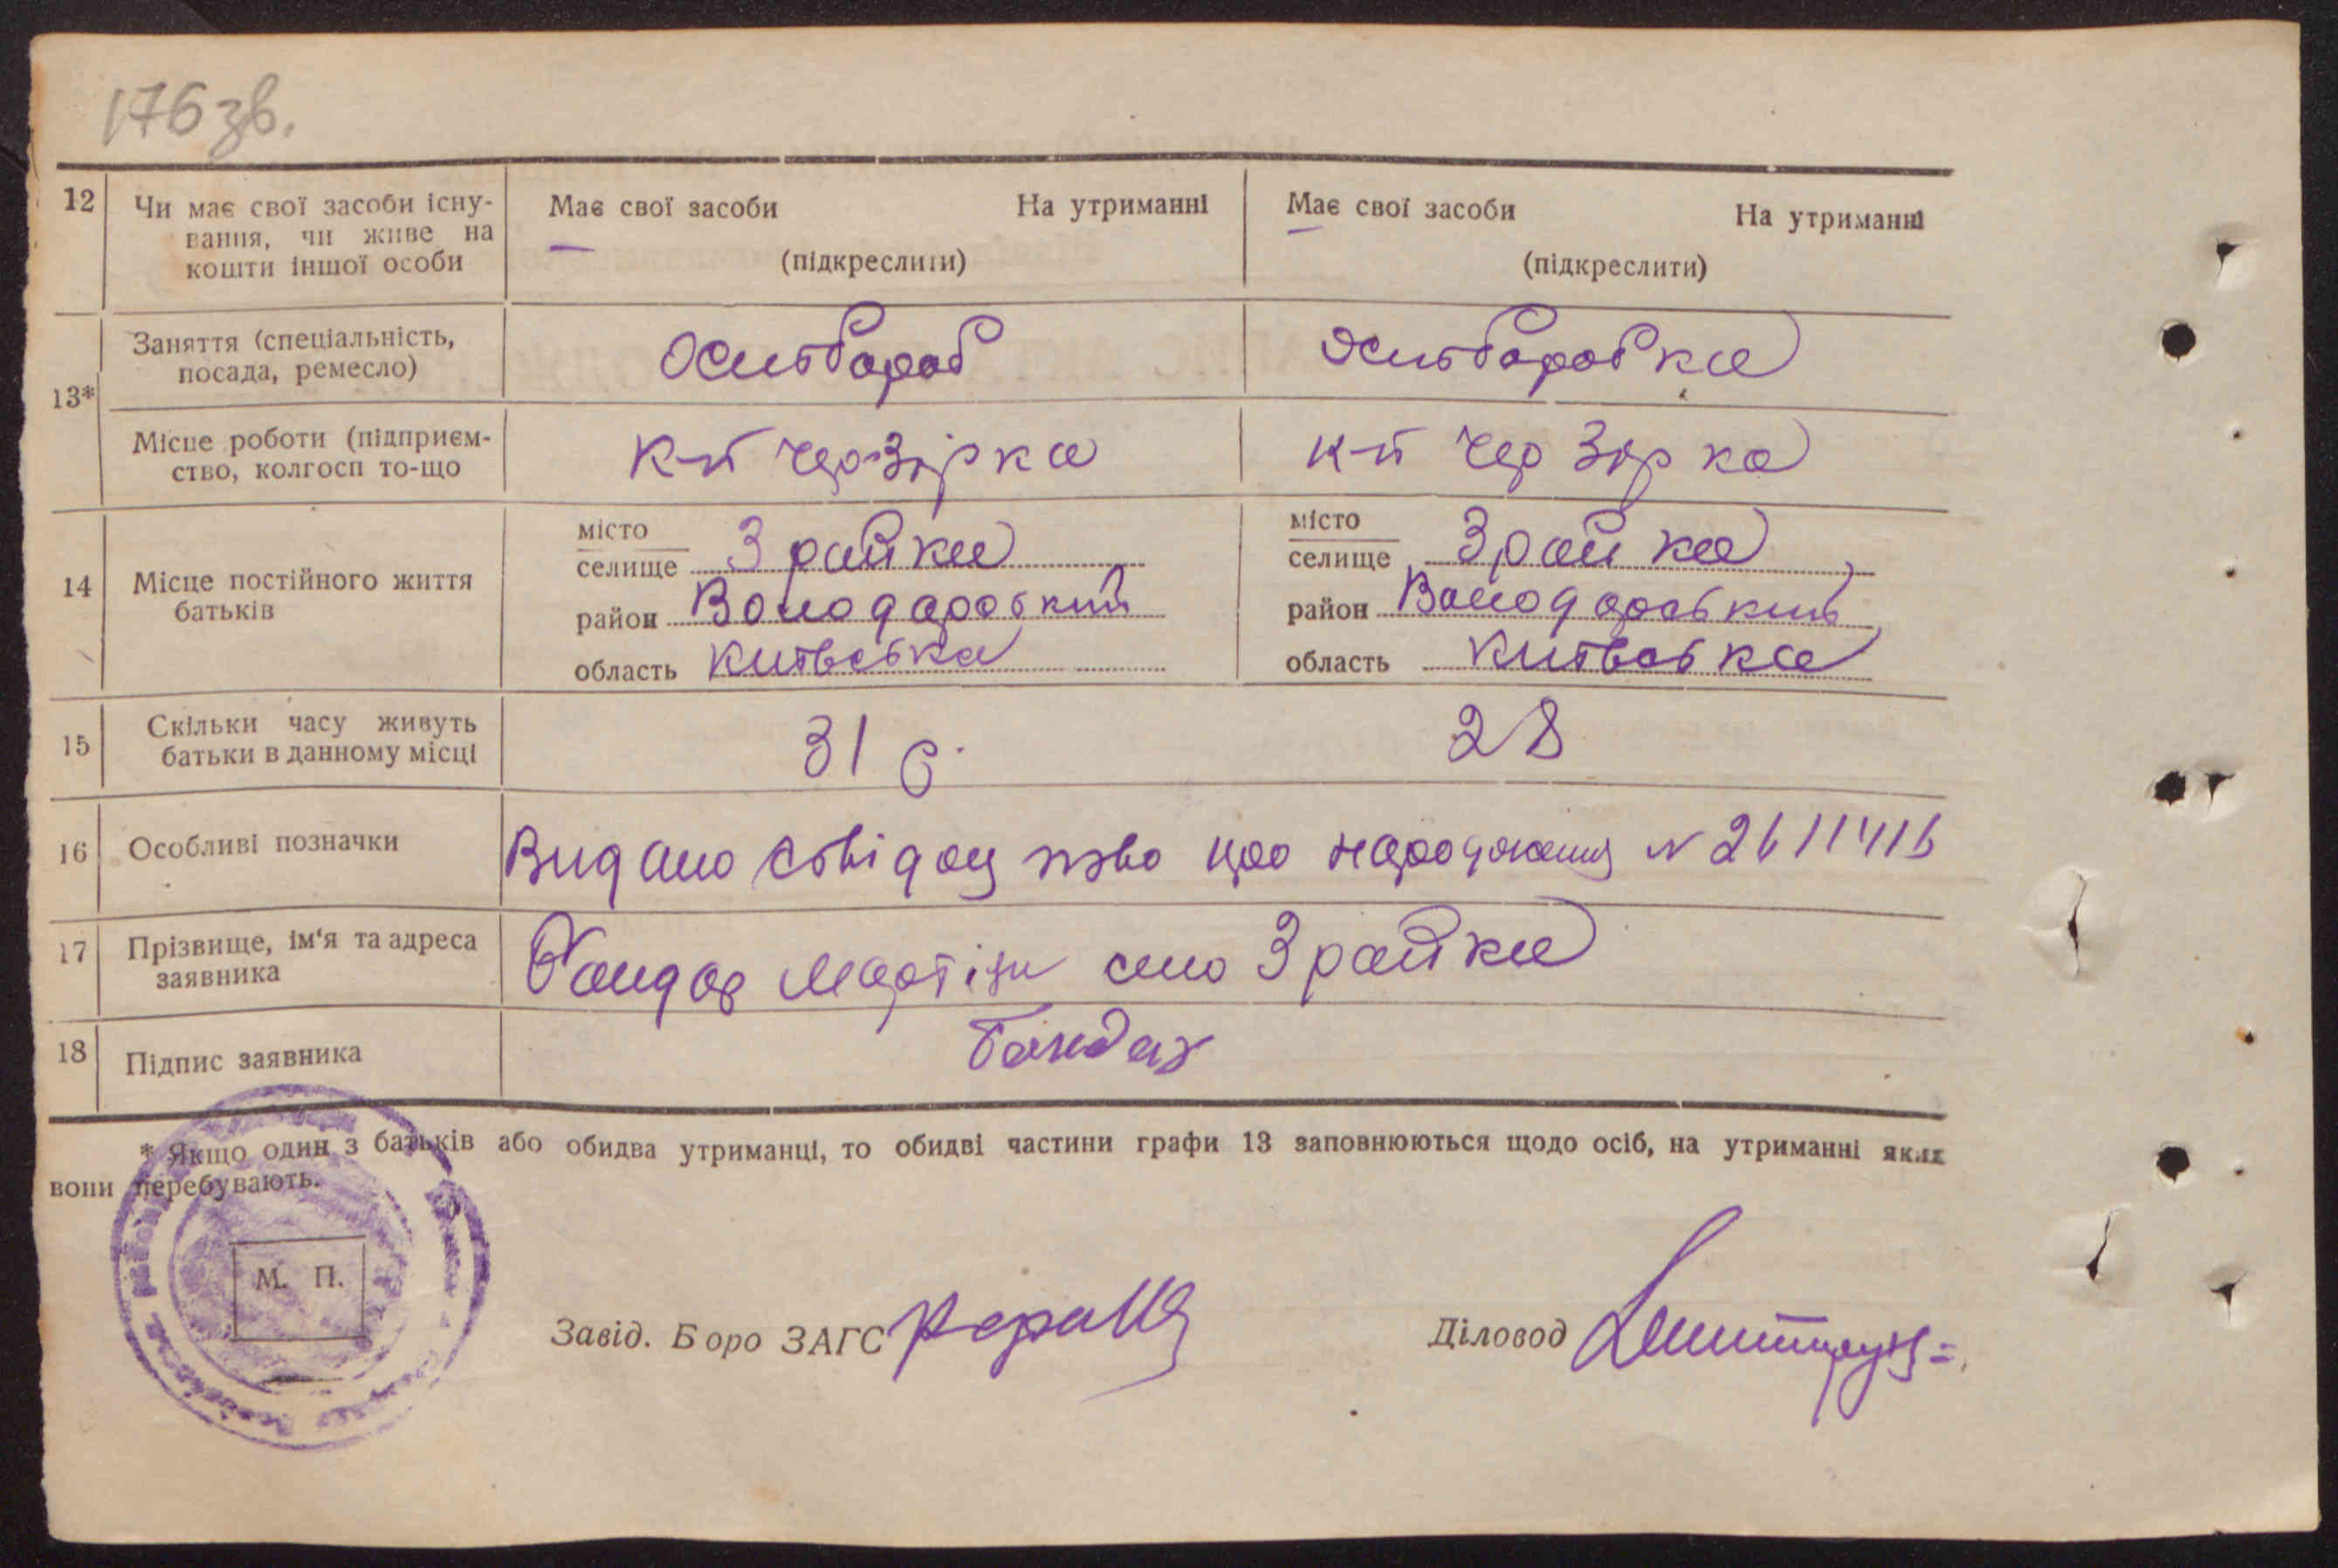 176 зв.
12 Чи має свої засоби існу- Має свої засоби На утриманні Має свої засоби На утриманні
вання, чи живе на
кошти іншої особи (підкреслити) (підкреслити)
13*
Заняття (спеціальність,
посада, ремесло) Хлібороб Хліборобка
Місце роботи (підприєм-
ство, колгосп то-що к-п Чер Зірка к-п Чер Зірка
14 Місце постійного життя
батьків
місто
селище Зрайки місто
селище Зрайка
район Володарський район Володарський
область Київська область Київська
15 Скільки часу живуть
батьки в данному місці 31 р. 28
16 Особливі позначки Видано свідоц тво про народження N 2611416
17 Прізвище, ім‘я та адреса
заявника Бондар Мартін село Зрайки
18 Підпис заявника Бондар
* Якщо один з батьків або обидва утриманці, то обидві частини графи 13 заповнюються щодо осіб, на утриманні яких
вони перебувають.
М. П.
Завід. Бюро ЗАГС Діловод